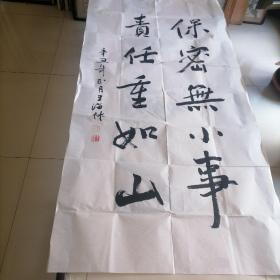 保密無小事
責任重如山
辛丑年正月王海傑